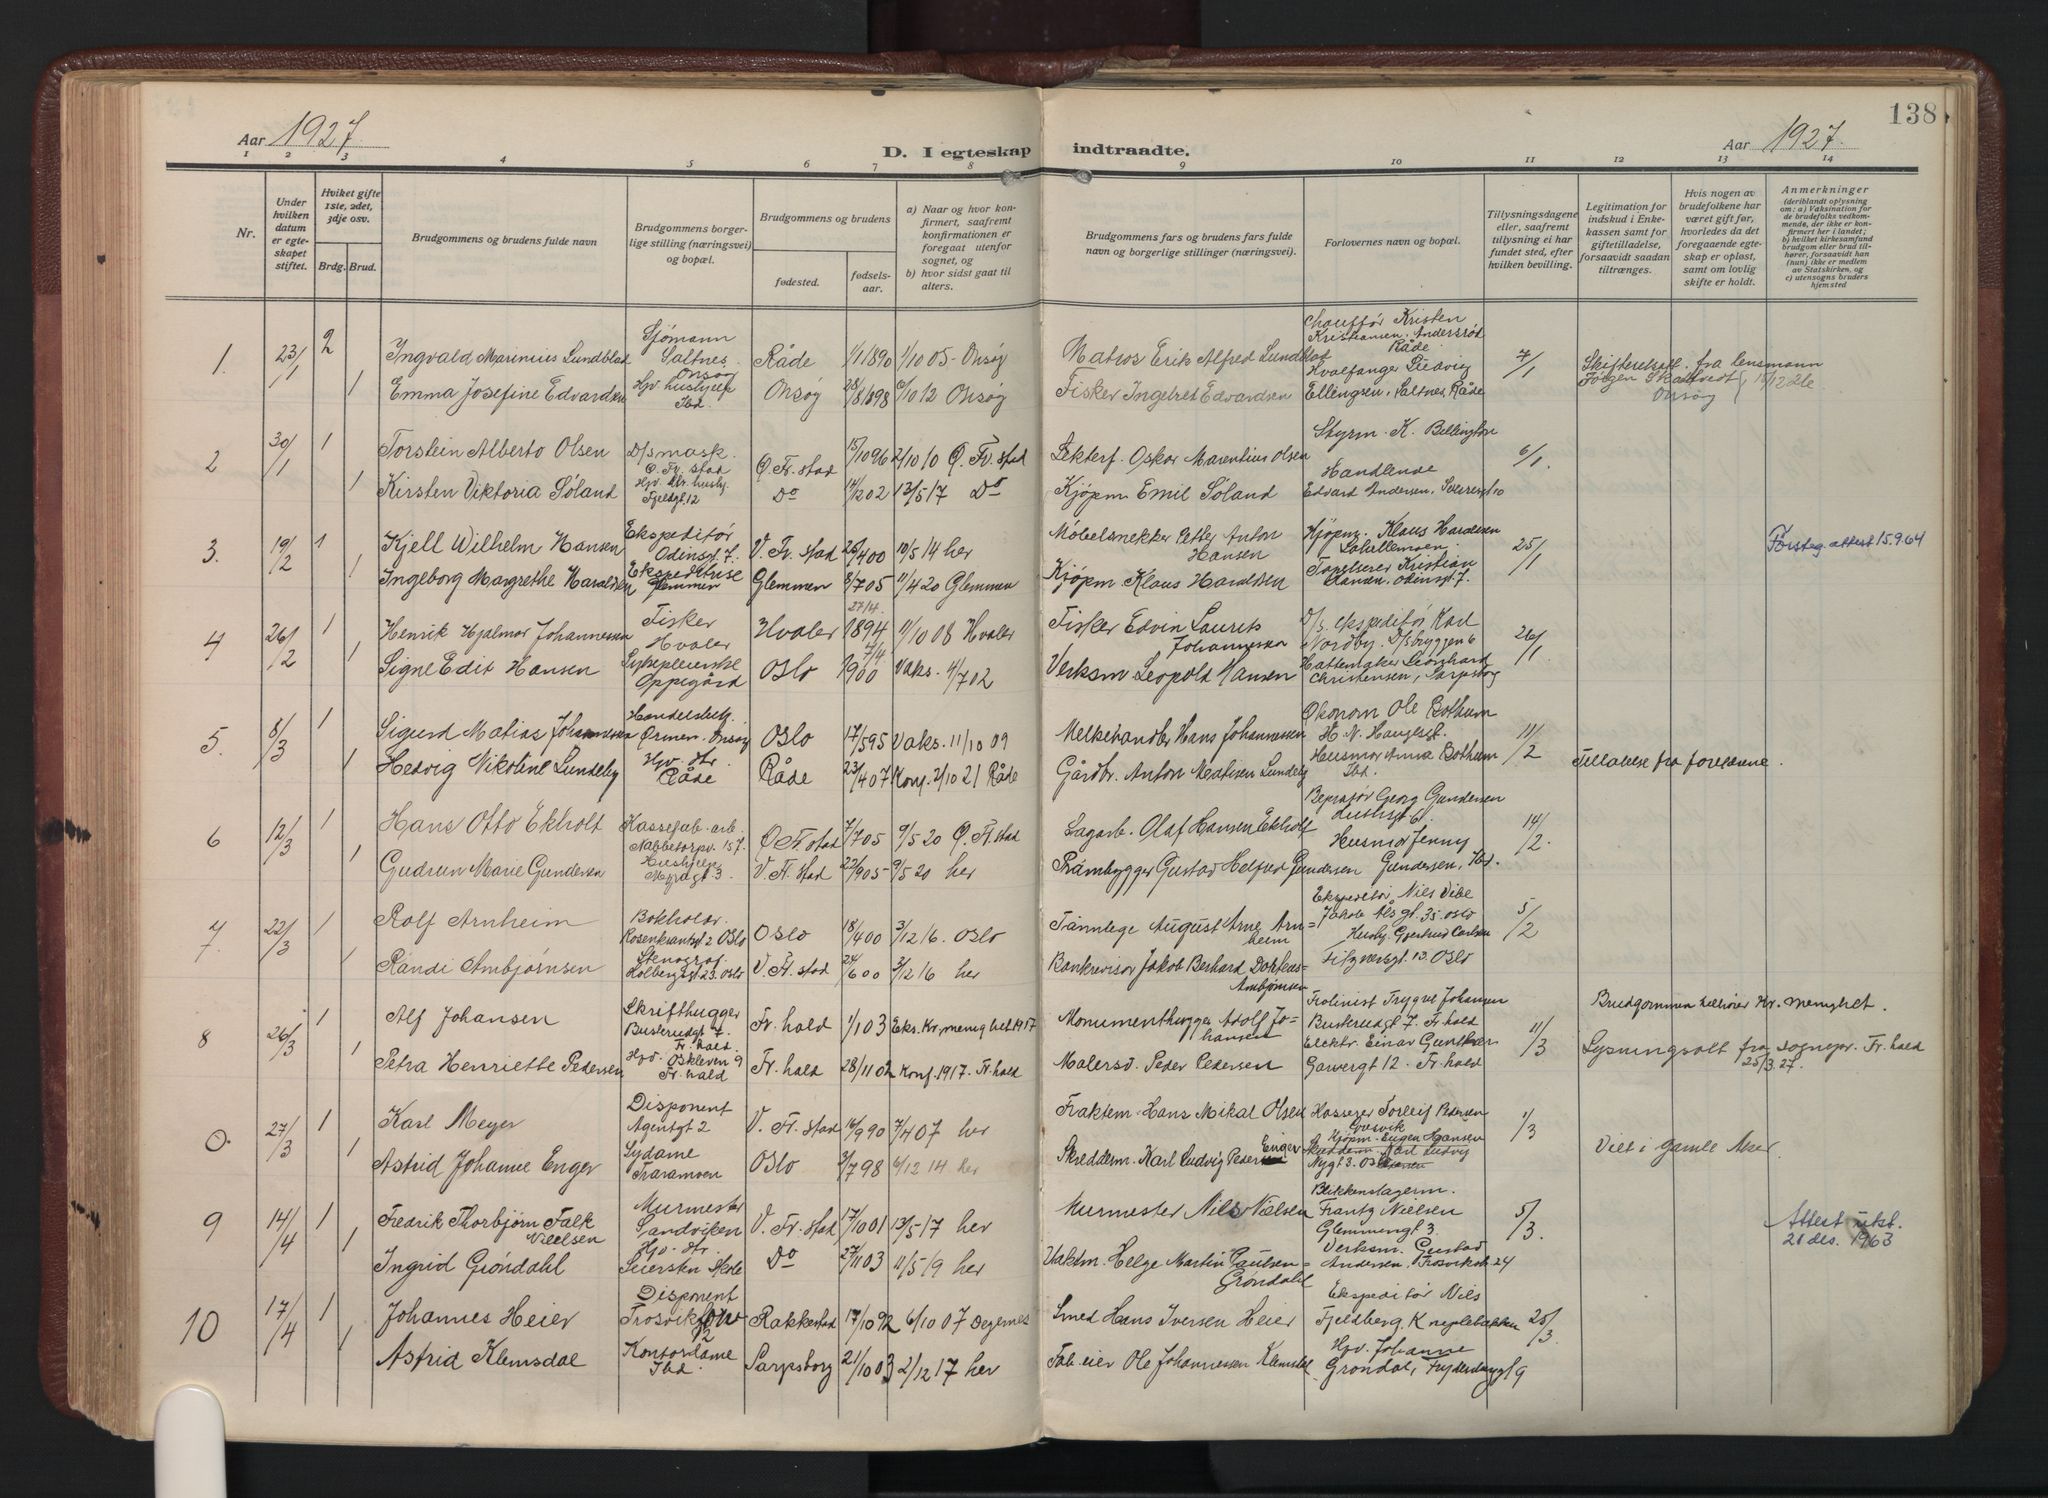 138
Aar 1927.
D. I egteskap indtraadte.
Aar 1927.
1 2 3 4 5 6 7 8 9 10 11 12 13 14
Nr.
Under hvilken datum er egteskapet stiftet.
Hvilket gifte 1ste, 2det, 3dje osv.
Brdg. Brud.
Brudgommens og brudens fulde navn
Brudgommens borgerlige stilling (næringsvei) og bopæl.
Brudgommens og brudens
fødested.
fødselsaar.
a) Naar og hvor konfirmert, saafremt konfirmationen er foregaat utenfor sognet, og
b) hvor sidst gaat til alters.
Brudgommens fars og brudens fars fulde navn og borgerlige stillinger (næringsvei).
Forlovernes navn og bopæl.
Tillysningsdagene eller, saafremt tillysning ei har fundet sted, efter hvilken bevilling.
Legitimation for indskud i Enkekassen samt for giftetilladelse, forsaavidt saadan tiltrænges.
Hvis nogen av brudefolkene har været gift før, hvorledes da det foregaaende egteskap er opløst, samt om lovlig skifte er holdt.
Anmerkninger
(deriblandt oplysning om: a) Vaksination for de brudefolks vedkommende, der ikke er konfirmert her i landet; b) hvilket kirkesamfund brudgom eller brud tilhører, forsaavidt han (hun) ikke er medlem av Statskirken, og c) utensogns bruders hjemsted
1. 23/1 2 Ingvald Marinius Lundblad Sjømann Saltnes Onsøy Råde 1/1 1890 1/10 05 Onsøy Matros Erik Alfred Lundblad Chauffør Kristen Kristiansen, Andersrød Råde 7/1
1 Emma Josefine Edvardsen Hjv. hushjelp Ibd. Onsøy 28/8 1898 6/10 12 Onsøy Fisker Ingebret Edvardsen Hvalfanger Ludvig Ellingsen, Saltnes, Råde
Skifteattest fra lensmann Jörgen Skaftvedt, Onsøy
2 30/1 1 Torstein Alberto Olsen D/smask. Ø. Fr. stad Ø. Fr. stad 15/10 96 2/10 10 Ø. Fr. stad Oskar Marentius Olsen Styrm. K. Bellington 6/1.
1 Kirsten Viktoria Søland Fjeldgt. 12 Do 14/2 02 13/5 17 Do Kjøpm Emil Søland Handlende Edvard Andersen,
3. 19/2 1 Kjell Wilhelm Hansen Ekspeditør Odinsgt. 7. V. Fr. stad 26/4 00 10/5 14 her Møbelsnekker Petter Anton Hansen Kjøpm. Klaus Haraldsen Lahellemoen 25/1
1 Ingeborg Margrethe Haraldsen Ekspeditrise Glemmen Glemmen 8/7 05 11/4 20 Glemmen Kjøpm Klaus Haraldsen Tapetserer Kristian Hansen, Odinsgt. 7.
Førsteg. attest 15.9.64
4 26/2 1 Henrik Hjalmar Johannessen Fisker Hvaler Hvaler 27/4 1894 1/10 08 Hvaler Fisker Edvin Laurits Johannessen D/s. ekspeditør Karl Nordby. D/sbryggen 6 26/1.
1 Signe Edit Hansen Sykepleierske Oppegård Oslo 7/4 1900 Vaks. 4/7 02 Verksm Leopold Hansen Hattemaker Leonhard Christensen, Sarpsborg
5. 8/3 1 Sigurd Matias Johannessen Ørmen. Onsøy Oslo 17/5 95 Vaks. 11/10 09 Melkehandler Hans Johannessen Økonom Ole Botheim H. N. Haugesgt. 11/2
1 Hedvig Nikoline Lundeby Hjv. dtr. Råde Råde 23/4 07 Konf. 2/10 21 Råde Gårdbr. Anton Matisen Lundeby Husmor Anna Botheim Ibd.
Tillatelse fra foreldrene.
6 12/3 1 Hans Otto Ekholt Kassefab-arb. Nabbetorpv. 157. Ø Fr stad 7/7 05 9/5 20 Ø. Fr. stad Sagarb. Olaf Hansen Ekholt Georg Gundersen 14/2.
1 Gudrun Marie Gundersen Hushjelp Myragt 3. V. Fr. stad 22/9 05 9/5 20 her Prambygger Gustav Helfred Gundersen Husmor Jenny Gundersen, Ibd.
7. 22/3 1 Rolf Arnheim Bokholder Rosenkrantzgt 2 Oslo Oslo 18/4 00 3/12 16. Oslo Tannlege August Arne Arnheim Ekspeditør Nils Vibe Jakob Alsgt. 35. Oslo 5/2
1 Randi Ambjørnsen Stenograf Holbergsgt 23. Oslo V. Fr. stad 24/6 00 3/12 16 her Bankrevisor Jakob Berhard Ambjørnsen Husbg. Gjertrud Carlsen 13. Oslo
8 26/3 1 Alf Johansen Skrifthugger Buskerudgt 7. Fr. hald. Fr. hald 1/1 03 Eks. Kr. menighet 1917 Monumenthugger Adolf Johansen Fiolinist Trygve Johansen Buskrudgt 7. Fr hald 11/3
1 Petra Henriette Pedersen Hjv. Oskleven 9 Fr. hald Fr. hald 28/11 02 Konf. 1917. Fr. hald Malersv. Peder Pedersen Elektr. Einar Gunther Garvergt 12. Fr. hald
Brudgommen tilhører Kr. menighet.
Lysningsatt fra sognepr. Fr. hald 25/3. 27.
0. 27/3 1 Karl Meyer Disponent Agentgt 2 V. Fr. stad 16/9 90 7/4 07 her Fraktem. Hans Mikal Olsen Kasserer Torleif Pedersen Gresvik 1/3
1 Astrid Johanne Enger Sydame Traramoen Oslo 3/7 98 6/12 14 her Skredderm. Karl Ludvig Pedersen Enger Kjøpm. Eugen Hansen Nygt 3.
Viet i gamle Aker
9 14/4 1 Fredrik Thorbjørn Falk Nielsen Murmester Sandviken V. Fr. stad 17/10 01 13/5 17 her Murmester Nils Nielsen Blikkenslagerm. Frantz Nielsen Glemmengt 3. 5/3.
1 Ingrid Grøndahl Hjv. dtr. Seiersten Do 27/11 03 11/5 19 her Vaktm. Helge Martin Paulsen Grøndahl Verksm. Gustav Andersen, 24
Attest utst. 21 des. 1963
10 17/4 1 Johannes Heier Disponent Rakkestad 17/10 92 6/10 07 Degernes Smed Hans Iversen Heier Ekspeditør Nils Fjeldberg, Kneplebakken 25/3.
1 Astrid Klemsdal Kontordame Ibd. Sarpsborg 21/10 03 2/12 17 her Fab-eier Ole Johannessen Klemsdal Hjv. Johanne Grøndal, 9